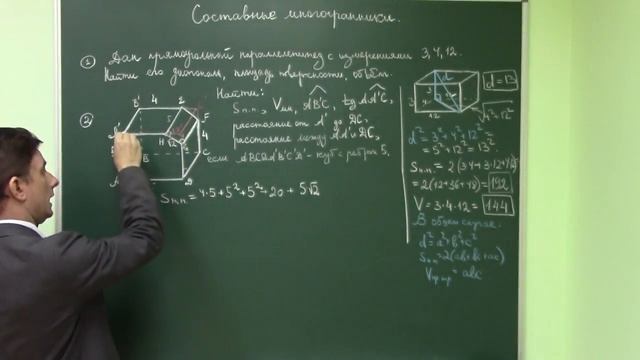 Составные многогранники.
① Дан прямоугольный параллелепипед с измерениями 3, 4, 12.
Найти его диагональ, площадь поверхности, объём.
Найти:
② Sп.п., Vмн, AB'C, tg AA'C,
расстояние от A' до
расстояние между AA' и DC,
если ABCDA'B'C'D' - куб с ребром 5,
Sп.п. = 4·5+5²+5²+20+5√2
B' 4 2
A' F
5
H √2 4
B C
D
d
3
4
12
d = 13
d² = 3²+4²+12² =
= 5²+12² = 13²
Sп.п. = 2(3·4+3·12+4·12)
= 2(12+36+48) = 192
V = 3·4·12 = 144
В общем случае:
d² = a²+b²+c²
Sп.п. = 2(ab+bc+ac)
Vпр.пр = abc